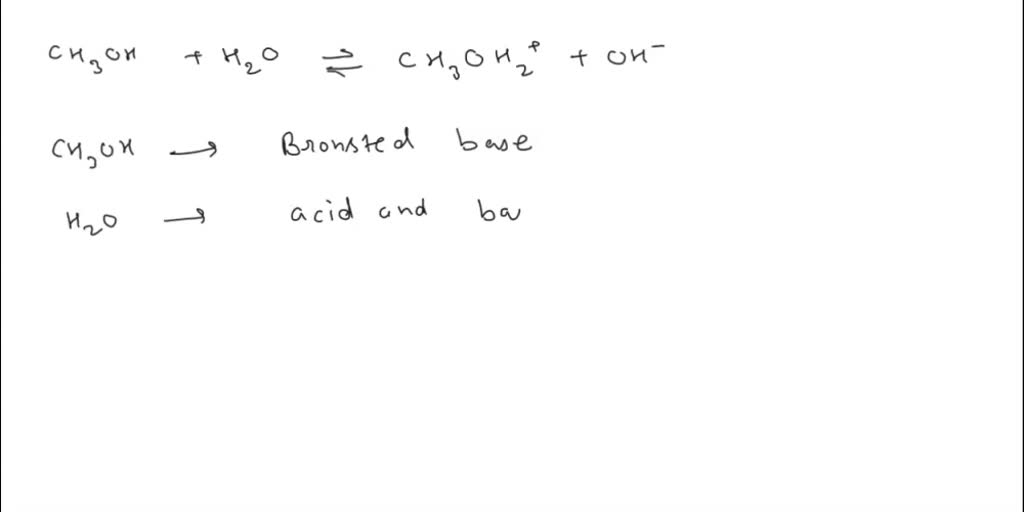 CH₃OH + H₂O ⇌ CH₃OH₂⁺ + OH⁻
CH₃OH → Bronsted base
H₂O → acid and ba